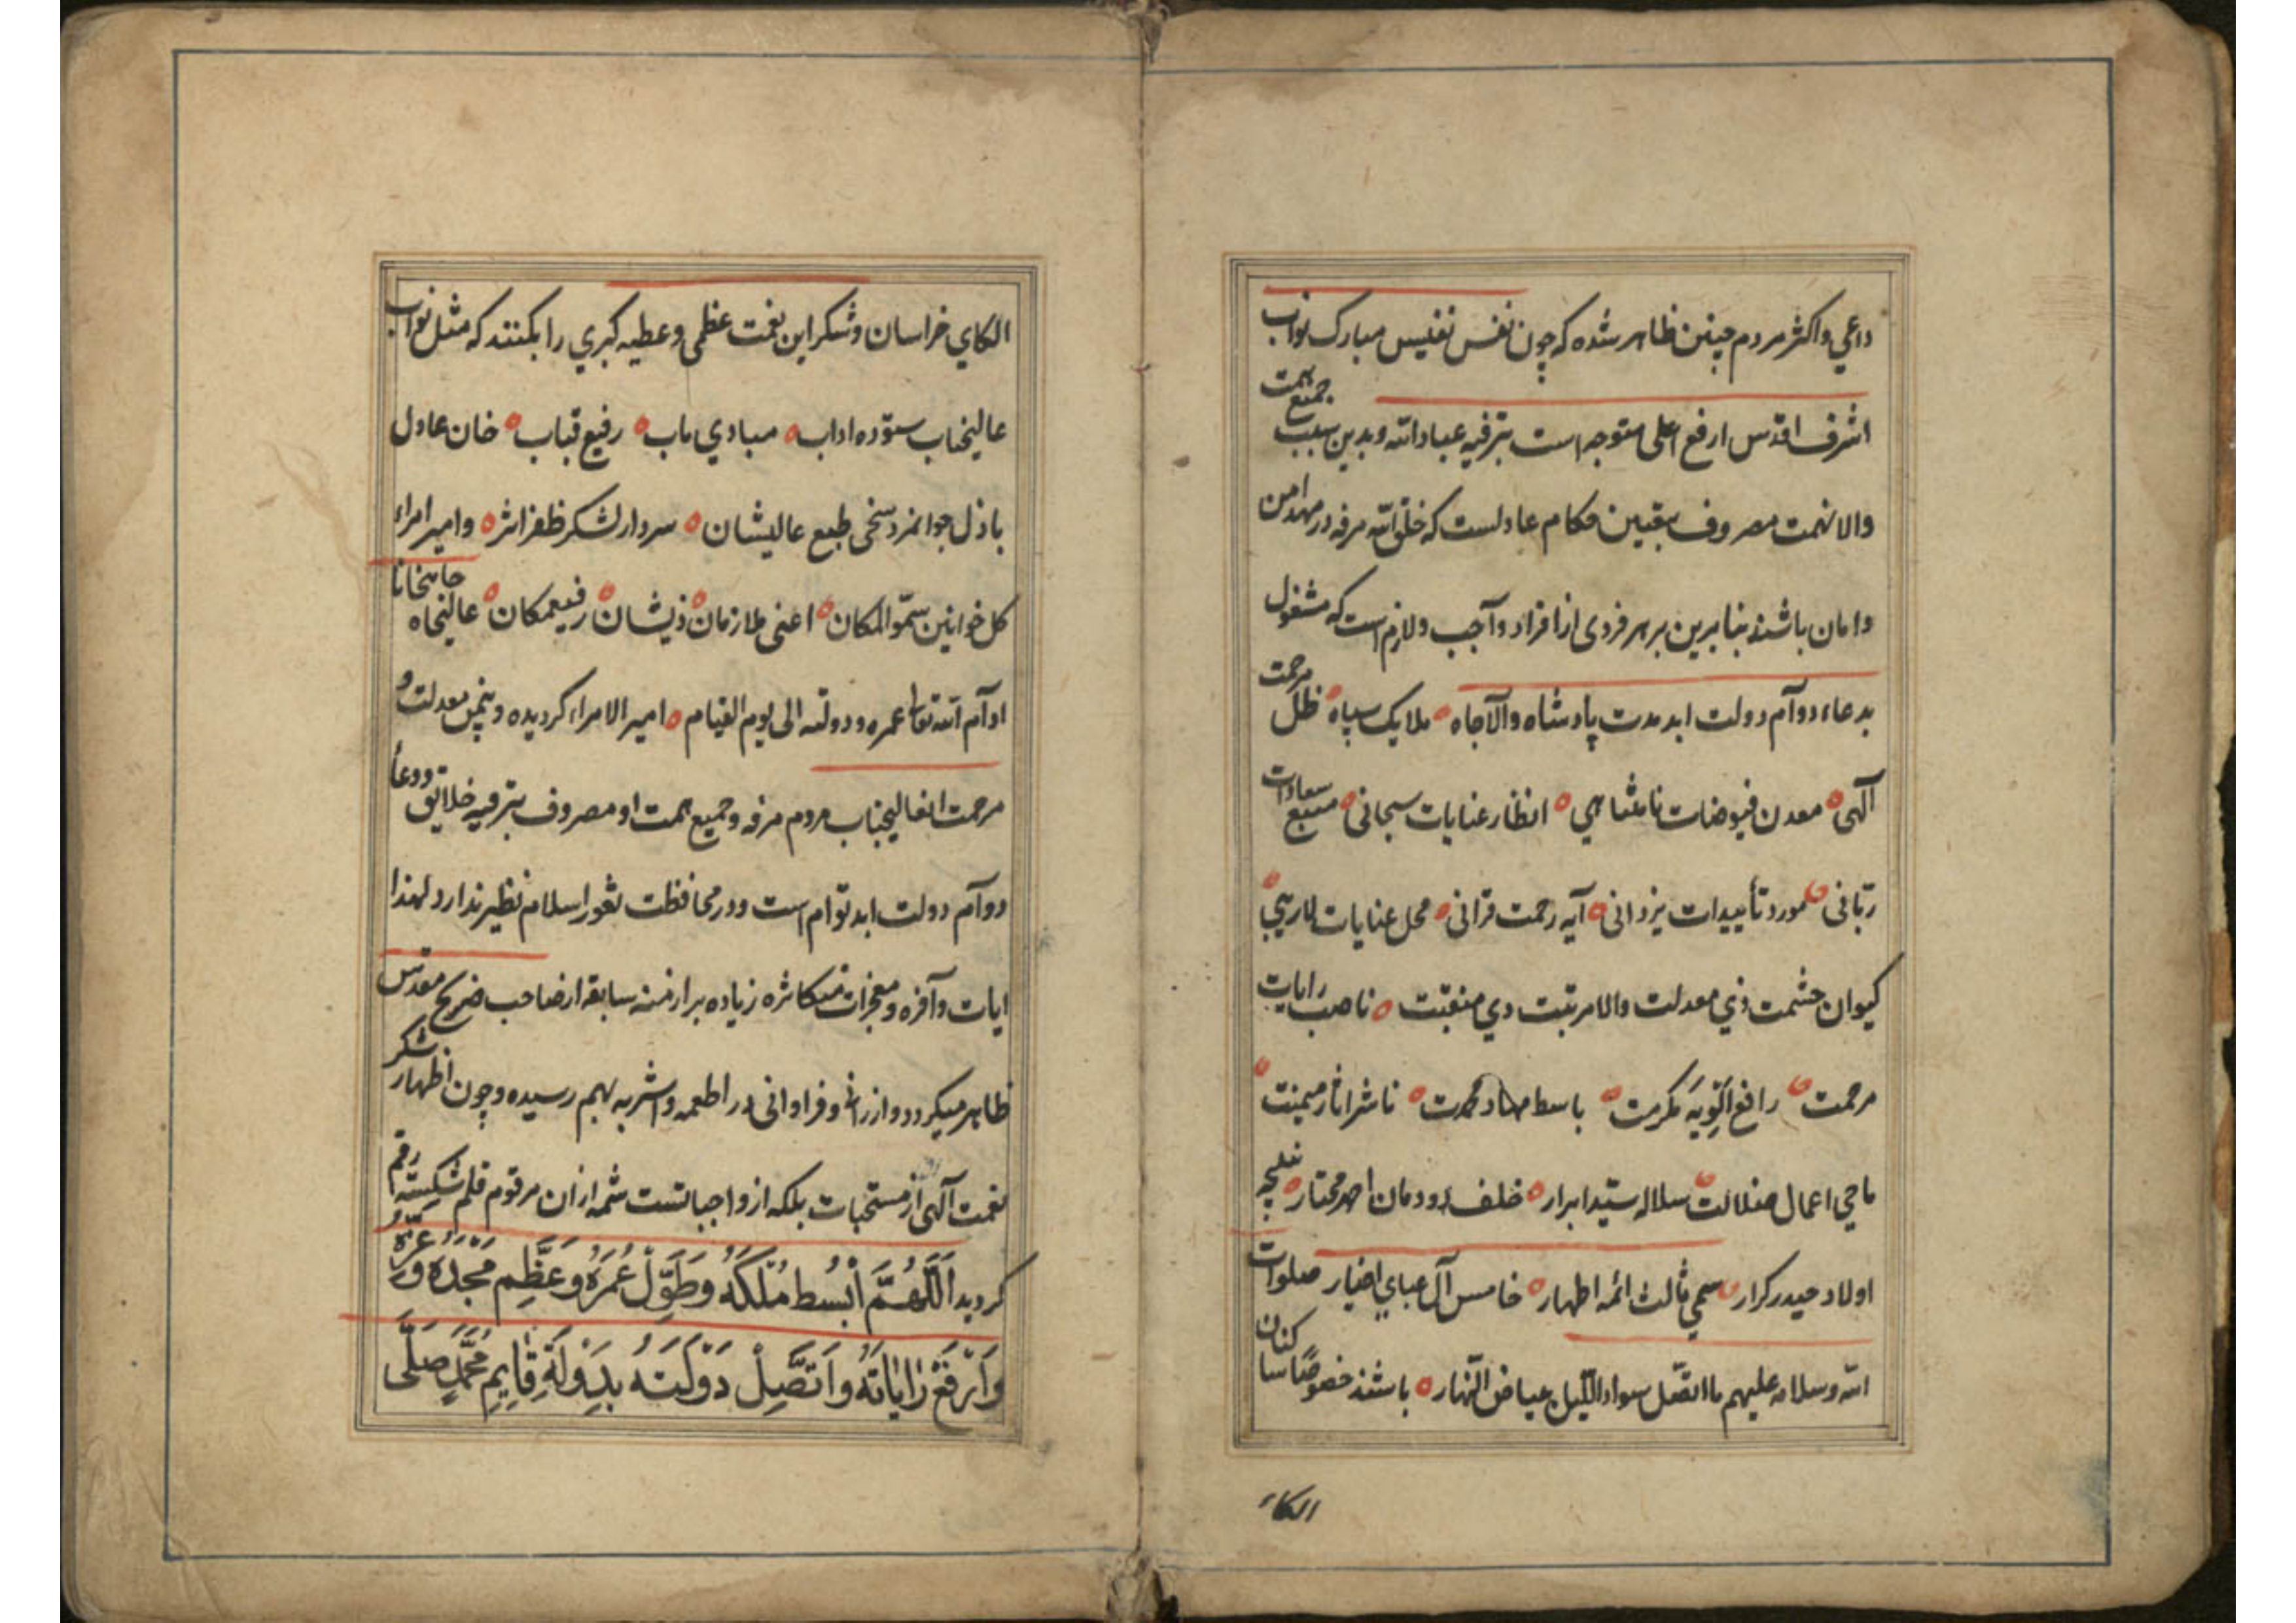 داعي واكثر مردم چنين ظاهر شده كه چون نفس نفيس مبارك نواب
اشرف اقدس ارفع اعلى متوجه است بترفيه عباد الله و بدين سبب جميع همت
والا نهمت مصروف بتعيين حكام عادلست كه خلق الله مرفه در مهد امن
وامان باشند بنابرين بر هر فردى از افراد واجب ولازم است كه مشغول
بدعاء دوآم دولت ابد مدت پادشاه والآجاه ملايك سپاه ظل مرحمت
آلهى معدن فيوضات نامتناهي انظار عنايات سبحانى منبع سعادات
ربّانى مورد تأييدات يزدانى آيه رحمت قرانى محل عنايات لاريبي
كيوان حشمت ذي معدلت والا مرتبت دي منقبت ناصب رايات
مرحمت رافع اَلْوِيَه مَكرمت باسط مهاد محمدت ناشر اثار ميمنت
ماحي اعمال ضلالت سلاله سيّد ابرار خلف دودمان احمد مختار نتيجه
اولاد حيدر كرار سمي ثالث ائمه اطهار خامس آل عباي اخيار صلوات
الله وسلامه عليهم ما اتصّل سواد اللّيل بياض النّهار باشند خصوصًا ساكنان
الكاي
الكاي خراسان وشكر اين نعمت عظمى وعطيه كبري را بكنند كه مثل نواب
عاليجناب ستوده اداب مبادي ماب رفيع قباب خان عادل
باذل جوانمرد سخى طبع عاليشان سردار لشكر ظفر اثر وامير امراء
كل خوانين سمّو المكان اعنى ملازمان ذيشان رفيعمكان عاليجاه
ادآم الله تعا عمره ودولته الى يوم القيام امير الامراء كرديده و بيمن معدلت و
مرحمت انعاليجناب مردم مرفه وجميع همت او مصروف بترفيه خلايق ودعاُ
دوآم دولت ابد توام است ودر محافظت ثغور اسلام نظير ندارد لهذا
ايات وآفره ومعجزات متكاثره زياده بر ازمنه سابقه از صاحب ضريح مقدس
ظاهر ميكردد و ارزانى وفراوانى در اطعمه واشربه بهم رسيده وچون اظهار شكر
نعمت آلهى از مستحبات بلكه از واجباتست شمه از ان مرقوم قلم شكسته رقم
كرديد اَللّٰهُمَّ اَبْسُط مُلْكَهُ وَطَوِّلْ عُمَرَهُ وَعَظِّم مَجْدَهُ وَعِزَّهُ
وَاَرْفَعْ رٰايٰاتَهُ وَاَتَّصِلْ دَوْلَتَهُ بِدَوْلَةِ قٰايِمِ مُحَمَّدٍ صَلَّى